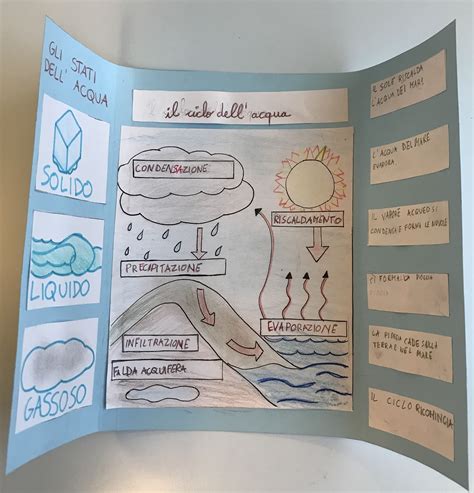 GLI STATI
DELL' ACQUA
SOLIDO
LIQUIDO
GASSOSO
il ciclo dell' acqua
CONDENSAZIONE
RISCALDAMENTO
PRECIPITAZIONE
EVAPORAZIONE
INFILTRAZIONE
FALDA ACQUIFERA
IL SOLE RISCALDA
L'ACQUA DEI MARI
L'ACQUA DEL MARE
EVAPORA
IL VAPORE ACQUEO SI
CONDENSA E FORMA LE NUVOLE
SI FORMA LA
LA PIOGGIA CADE SULLA
TERRA E NEL MARE
IL CICLO RICOMINCIA